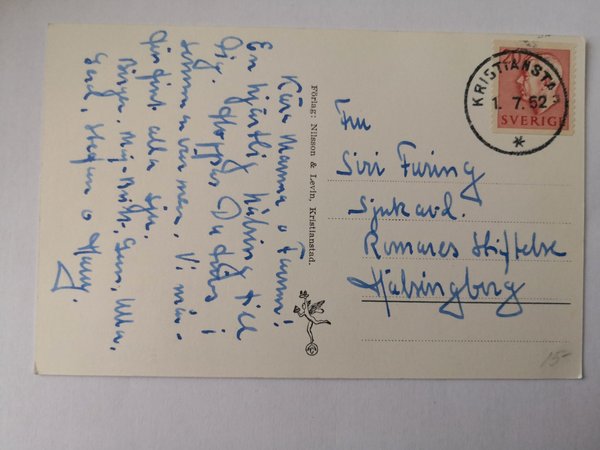 Kära Mamma o Farmor!
En hjärtlig hälsning till
Dig. Hoppas Du i
sommarvärmen. Vi mår
fint alla sju.
Birger, Maj-Britt, Gun, Ulla,
Gerd, Stefan o Harry.
Förlag: Nilsson & Levin, Kristianstad.
KRISTIANSTAD
1. 7. 62
SVERIGE
Fru
Siri Furing
Sjukavd.
Romares Stiftelse
Hälsingborg
15-